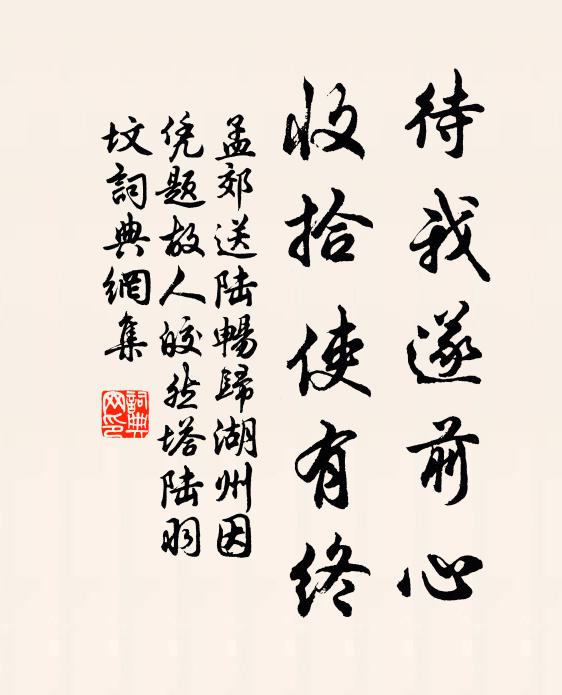 待我遂前心
收拾使有终
孟郊送陆暢歸湖州因
凭题故人皎然塔陆羽
坟詞典網集
詞典
网印